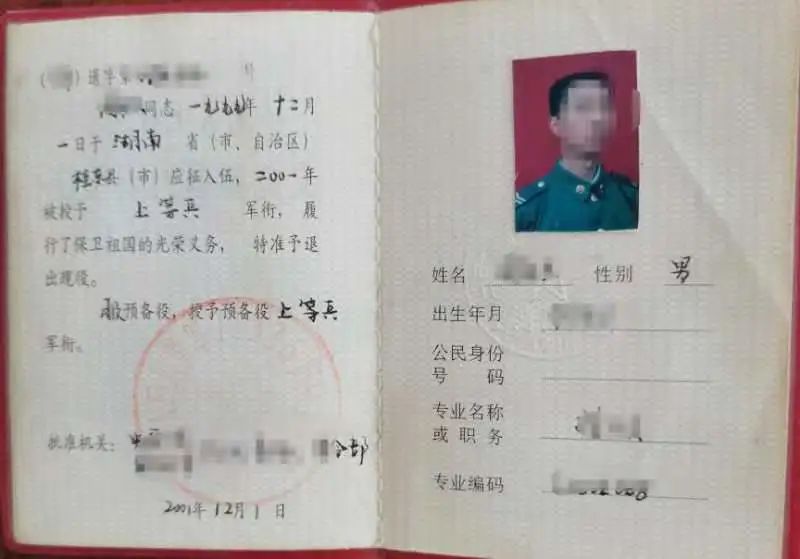 退字第 号
同志 一九九九年 十二月
一日于 湖南 省（市、自治区）
桂东县（市）应征入伍，二〇〇一年
被授于 上等兵 军衔，履
行了保卫祖国的光荣义务，特准予退
出现役。
服预备役，授予预备役上等兵
军衔。
批准机关：
2001年12月1日
姓名 性别 男
出生年月
公民身份
号 码
专业名称
或职务
专业编码